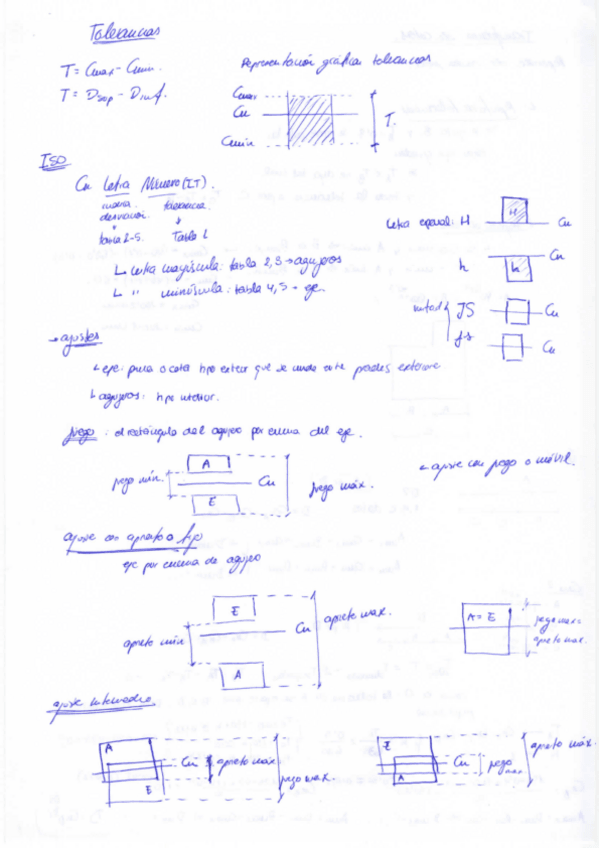 Tolerancias
T = Cmax - Cmin.
T = Dsup - Dinf.
Representación gráfica tolerancias
Cmax
Cn
Cmin
T.
ISO
Cn Letra Número (IT).
desviación. tolerancia
tabla 2-5. Tabla 1
Letra mayúscula: tabla 2,3 → agujeros
" minúscula: tabla 4,5 → eje.
Letra especial: H
H
Cn
h
h
Cn
JS
Cn
js
Cn
→ ajustes
eje: pieza o cota tipo exterior que se mide entre paredes exteriores
agujeros: tipo interior.
juego: el rectángulo del agujero por encima del eje.
juego mín.
A
Cn
E
juego máx.
ajuste con juego o móvil.
ajuste con aprieto o fijo
eje por encima de agujero
aprieto mín
E
Cn
A
aprieto max.
A = E
juego max =
aprieto max.
ajuste intermedio.
A
E
Cn
aprieto máx
juego max.
E
A
Cn
juego max
aprieto máx.